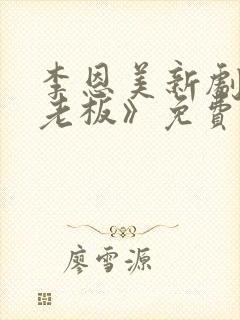 李恩美新劇
老板》免費
廖雪源